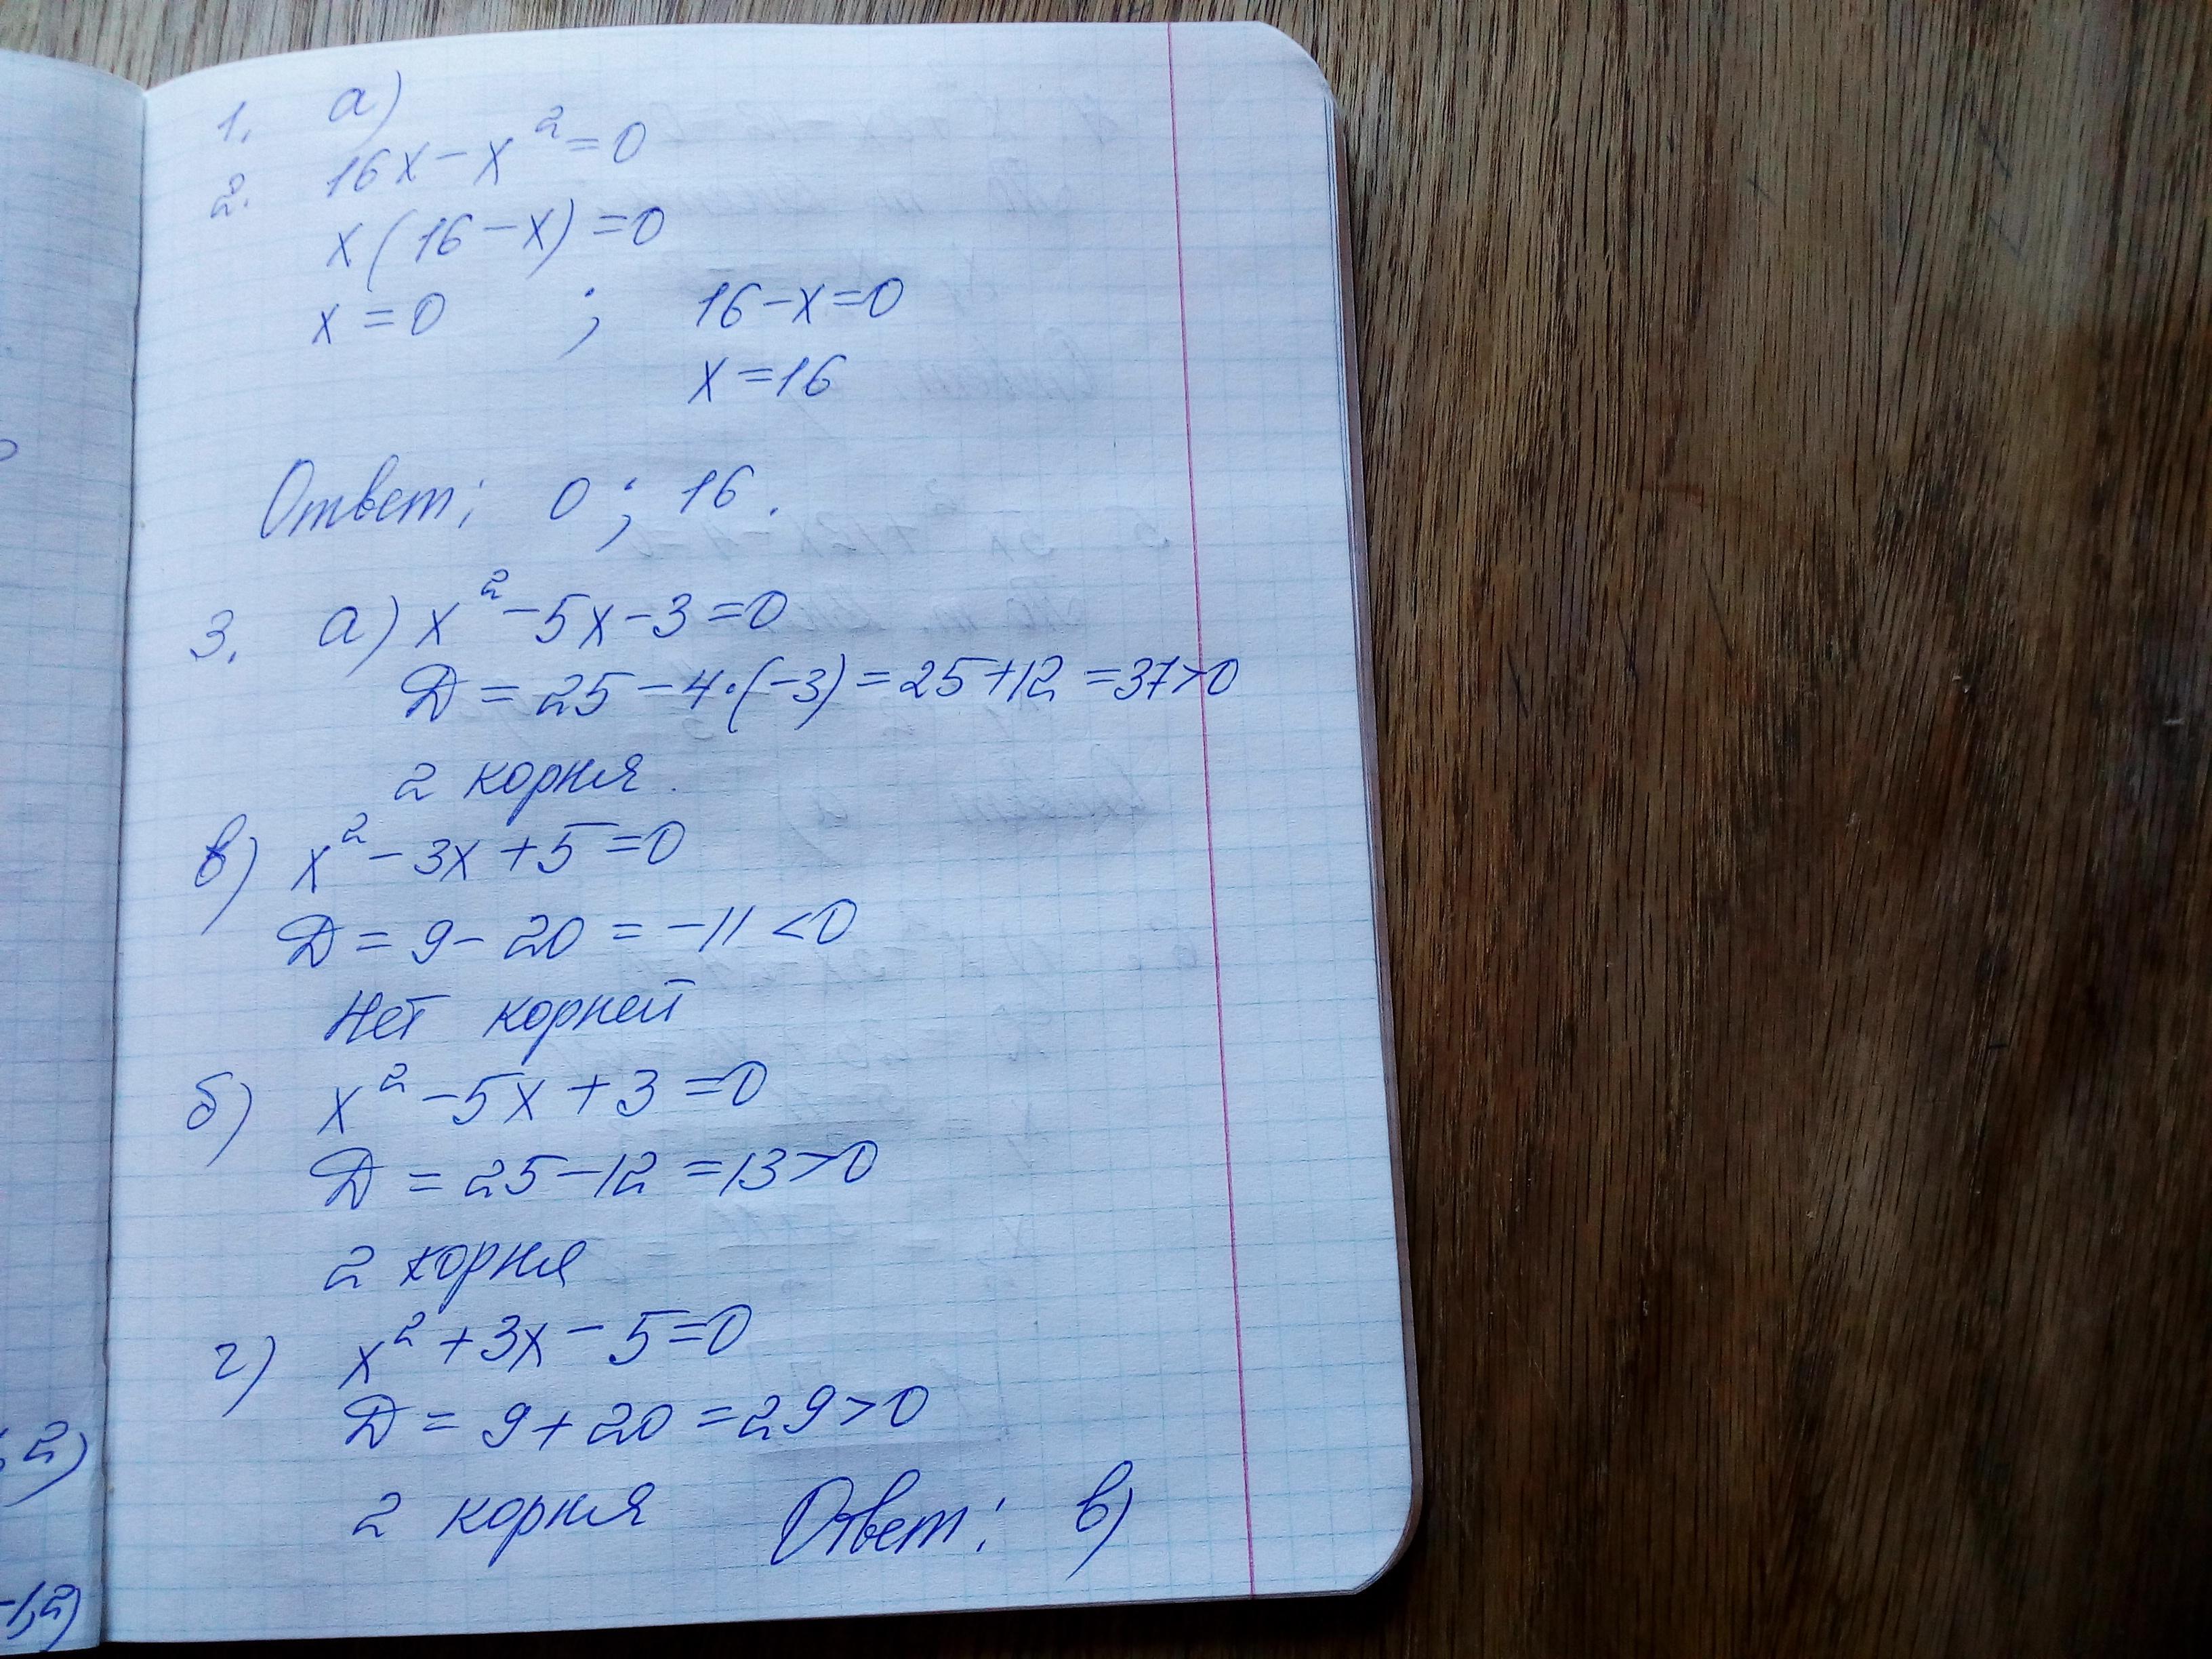 1. а)
2. 16x - x² = 0
x(16 - x) = 0
x = 0 ; 16 - x = 0
x = 16
Ответ: 0; 16.
3. а) x² - 5x - 3 = 0
Д = 25 - 4·(-3) = 25 + 12 = 37 > 0
2 корня.
в) x² - 3x + 5 = 0
Д = 9 - 20 = -11 < 0
Нет корней
б) x² - 5x + 3 = 0
Д = 25 - 12 = 13 > 0
2 корня
г) x² + 3x - 5 = 0
Д = 9 + 20 = 29 > 0
2 корня Ответ: в)